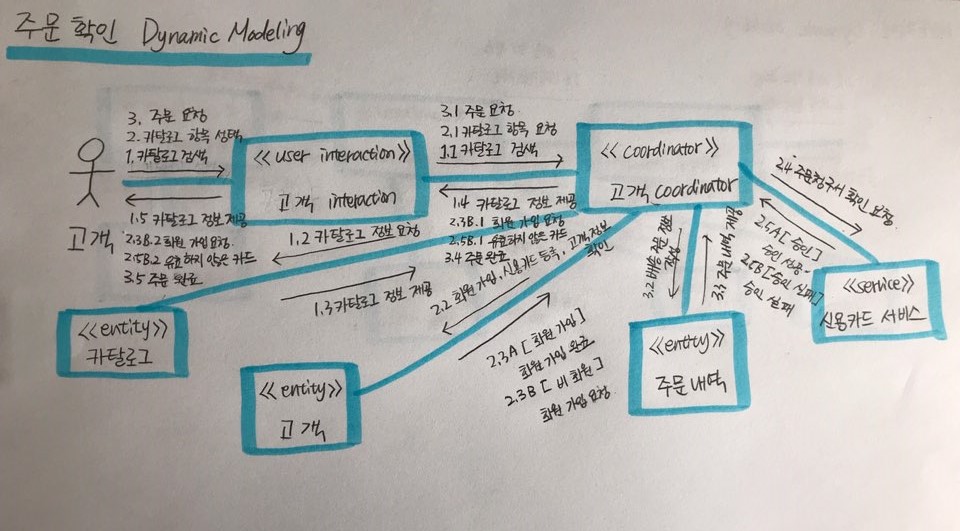 주문 확인 Dynamic Modeling
3. 주문 요청
2. 카탈로그 항목 선택
1. 카탈로그 검색
고객
1.5 카탈로그 정보 제공
2.3B.2 회원 가입 요청
2.5B.2 유효하지 않은 카드
3.5 주문 완료
<<user interaction>>
고객 interaction
3.1 주문 요청
2.1 카탈로그 항목 요청
1.1 카탈로그 검색
1.4 카탈로그 정보 제공
2.3B.1 회원 가입 요청
2.5B.1 유효하지 않은 카드
3.4 주문 완료
<<coordinator>>
고객 coordinator
1.2 카탈로그 정보 요청
1.3 카탈로그 정보 제공
<<entity>>
카탈로그
2.2 회원 가입, 신용카드 등록, 고객정보
확인
2.3A [회원 가입]
회원 가입 완료
2.3B [비 회원]
회원 가입 요청
<<entity>>
고객
3.2 배송 주문 정보
저장
3.3 주문 내역 제공
<<entity>>
주문내역
2.4 주문청구서 확인 요청
2.5A [승인]
승인
2.5B [승인 실패]
승인 실패
<<service>>
신용카드 서비스